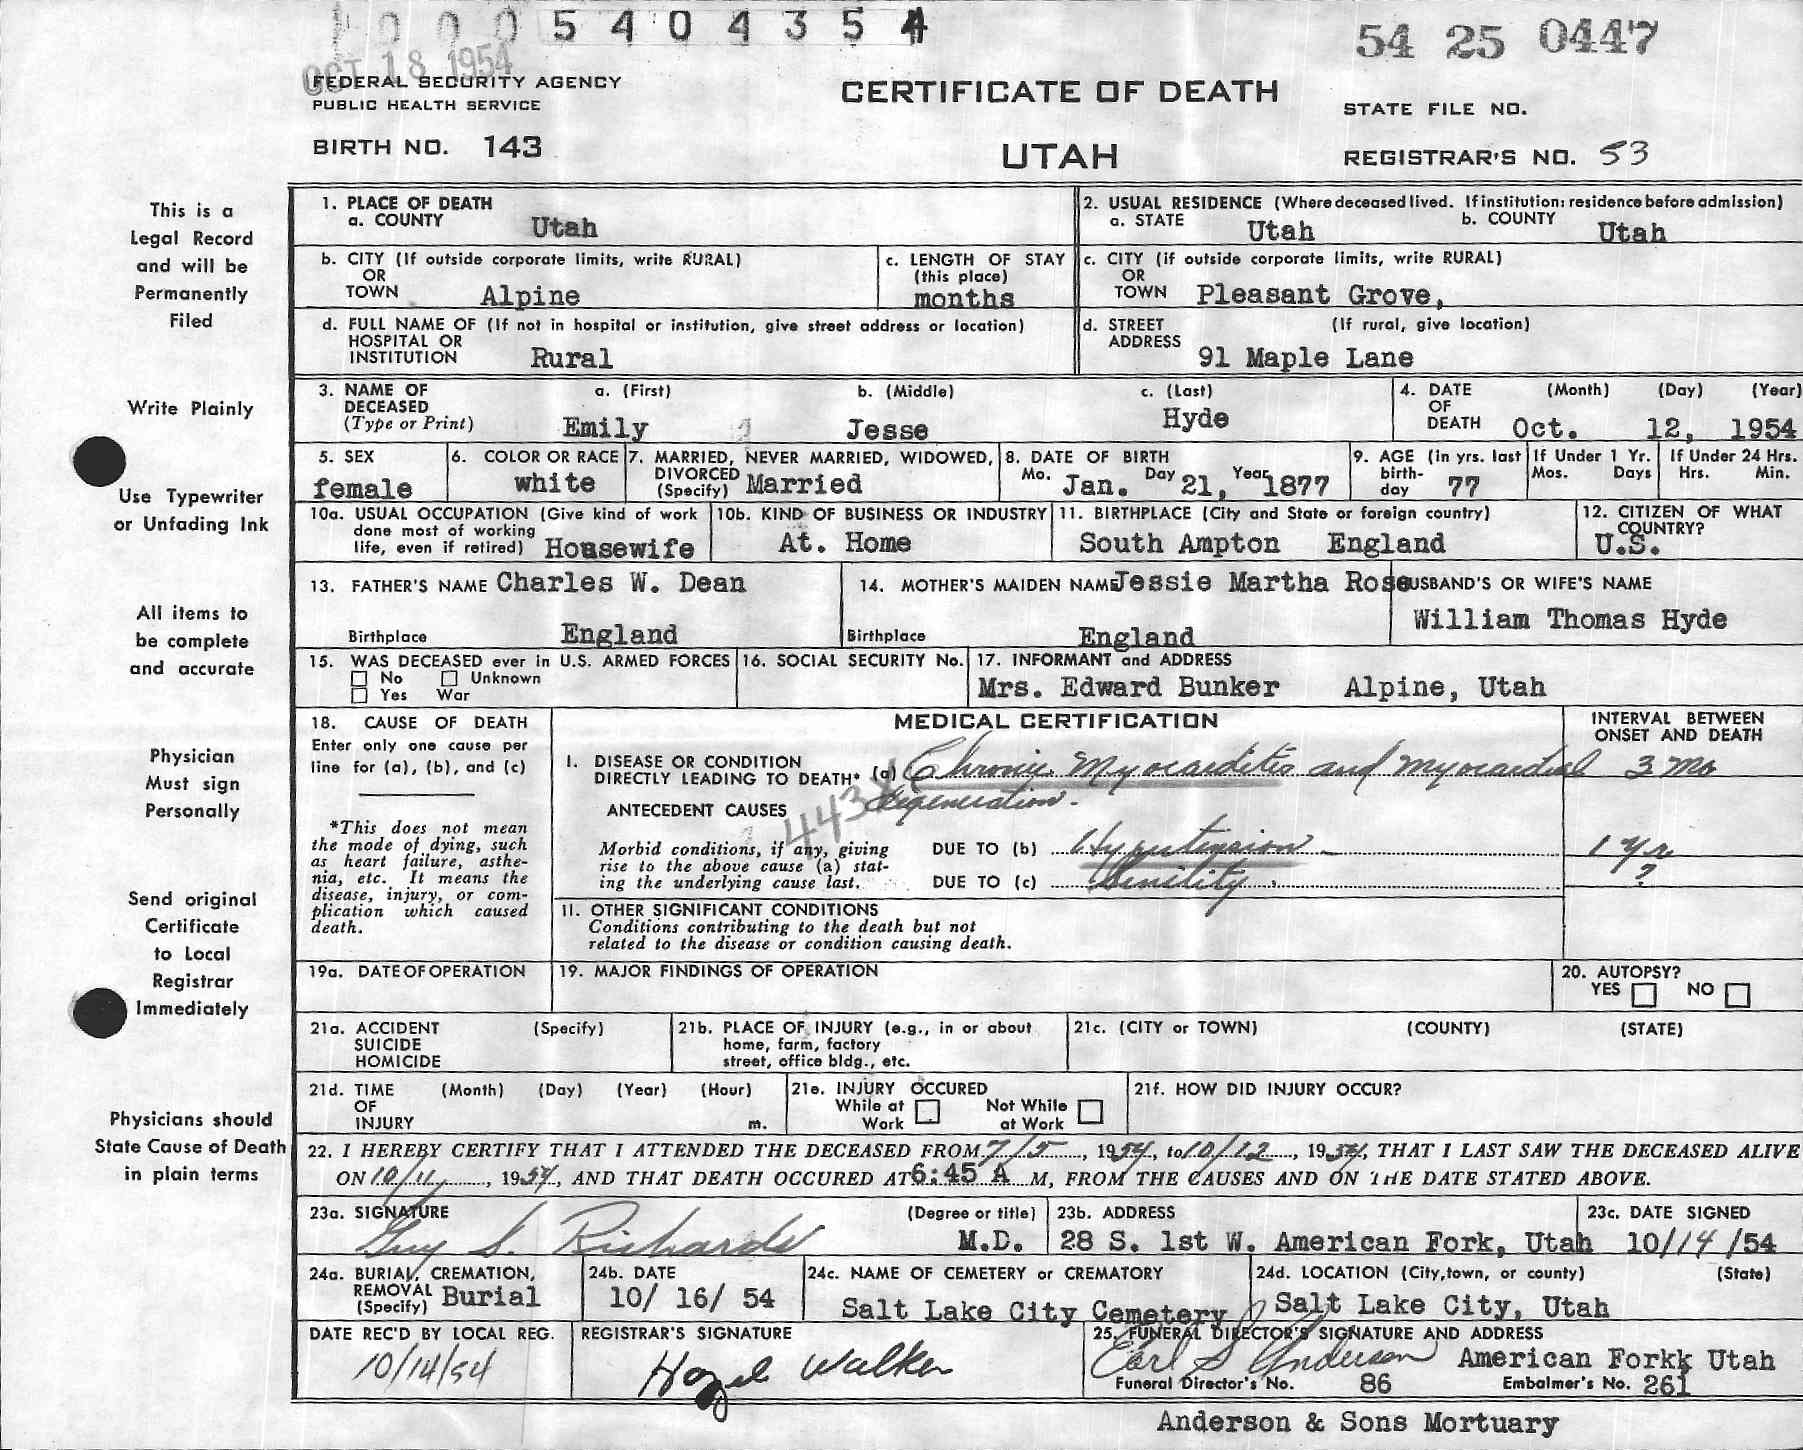 1 0 0 0 5 4 0 4 3 5 4
54 25 0447
OCT 18 1954
FEDERAL SECURITY AGENCY
PUBLIC HEALTH SERVICE
CERTIFICATE OF DEATH
STATE FILE NO.
BIRTH NO. 143
UTAH
REGISTRAR'S NO. 53
This is a
Legal Record
and will be
Permanently
Filed
Write Plainly
Use Typewriter
or Unfading Ink
All items to
be complete
and accurate
Physician
Must sign
Personally
Send original
Certificate
to Local
Registrar
Immediately
Physicians should
State Cause of Death
in plain terms
1. PLACE OF DEATH
a. COUNTY Utah
2. USUAL RESIDENCE (Where deceased lived. If institution: residence before admission)
a. STATE Utah b. COUNTY Utah
b. CITY (If outside corporate limits, write RURAL)
OR
TOWN Alpine
c. LENGTH OF STAY
(this place)
months
c. CITY (if outside corporate limits, write RURAL)
OR
TOWN Pleasant Grove,
d. FULL NAME OF (If not in hospital or institution, give street address or location)
HOSPITAL OR
INSTITUTION Rural
d. STREET (If rural, give location)
ADDRESS
91 Maple Lane
3. NAME OF
DECEASED
(Type or Print)
a. (First) b. (Middle) c. (Last)
Emily Jesse Hyde
4. DATE (Month) (Day) (Year)
OF
DEATH Oct. 12, 1954
5. SEX
female
6. COLOR OR RACE
white
7. MARRIED, NEVER MARRIED, WIDOWED,
DIVORCED
(Specify) Married
8. DATE OF BIRTH
Mo. Jan. Day 21, Year 1877
9. AGE (In yrs. last
birth-
day 77
If Under 1 Yr.
Mos. Days
If Under 24 Hrs.
Hrs. Min.
10a. USUAL OCCUPATION (Give kind of work
done most of working
life, even if retired) Housewife
10b. KIND OF BUSINESS OR INDUSTRY
At. Home
11. BIRTHPLACE (City and State or foreign country)
South Ampton England
12. CITIZEN OF WHAT
COUNTRY?
U.S.
13. FATHER'S NAME Charles W. Dean
Birthplace England
14. MOTHER'S MAIDEN NAME Jessie Martha Rose
Birthplace England
HUSBAND'S OR WIFE'S NAME
William Thomas Hyde
15. WAS DECEASED ever in U.S. ARMED FORCES
No Unknown
Yes War
16. SOCIAL SECURITY No.
17. INFORMANT and ADDRESS
Mrs. Edward Bunker Alpine, Utah
18. CAUSE OF DEATH
Enter only one cause per
line for (a), (b), and (c)
*This does not mean
the mode of dying, such
as heart failure, asthe-
nia, etc. It means the
disease, injury, or com-
plication which caused
death.
MEDICAL CERTIFICATION
INTERVAL BETWEEN
ONSET AND DEATH
I. DISEASE OR CONDITION
DIRECTLY LEADING TO DEATH* (a) Chronic Myocarditis and myocardial 3 mo
degeneration.
ANTECEDENT CAUSES
443X
Morbid conditions, if any, giving
rise to the above cause (a) stat-
ing the underlying cause last.
DUE TO (b) Hypertension 1 yr
DUE TO (c) Senility. ?
11. OTHER SIGNIFICANT CONDITIONS
Conditions contributing to the death but not
related to the disease or condition causing death.
19a. DATE OF OPERATION
19. MAJOR FINDINGS OF OPERATION
20. AUTOPSY?
YES NO
21a. ACCIDENT (Specify)
SUICIDE
HOMICIDE
21b. PLACE OF INJURY (e.g., in or about
home, farm, factory
street, office bldg., etc.
21c. (CITY or TOWN) (COUNTY) (STATE)
21d. TIME (Month) (Day) (Year) (Hour)
OF
INJURY m.
21e. INJURY OCCURED
While at Not While
Work at Work
21f. HOW DID INJURY OCCUR?
22. I HEREBY CERTIFY THAT I ATTENDED THE DECEASED FROM 7/5, 1954, to 10/12, 1954, THAT I LAST SAW THE DECEASED ALIVE
ON 10/11, 1954, AND THAT DEATH OCCURED AT 6:45 A M, FROM THE CAUSES AND ON THE DATE STATED ABOVE.
23a. SIGNATURE (Degree or title)
Guy S. Richards M.D.
23b. ADDRESS
28 S. 1st W. American Fork, Utah
23c. DATE SIGNED
10/14/54
24a. BURIAL, CREMATION,
REMOVAL
(Specify) Burial
24b. DATE
10/ 16/ 54
24c. NAME OF CEMETERY or CREMATORY
Salt Lake City Cemetery
24d. LOCATION (City, town, or county) (State)
Salt Lake City, Utah
DATE REC'D BY LOCAL REG.
10/14/54
REGISTRAR'S SIGNATURE
Hazel Walker
25. FUNERAL DIRECTOR'S SIGNATURE AND ADDRESS
Earl S Anderson American Forkk Utah
Funeral Director's No. 86 Embalmer's No. 261
Anderson & Sons Mortuary